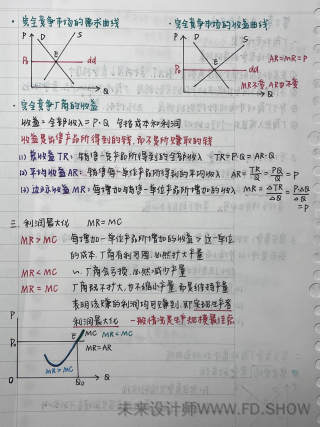 · 完全竞争市场的需求曲线
· 完全竞争市场的收益曲线
P D S
E
P₀ dd
Q
P D S
E
P₀ dd
AR=MR=P
MR不变, AR不变
Q
· 完全竞争厂商的收益
收益=全部收入=P·Q 包括成本和利润
收益是出售产品所得到的钱,而不是所赚取的钱
(1) 总收益TR: 销售一定产品所得到的全部收入 TR=P·Q=AR·Q
(2) 平均收益AR: 销售每一单位产品所得到的平均收入 AR=TR/Q=PQ/Q=P
(3) 边际收益MR: 每增加销售一单位产品所增加的收入 MR=ΔTR/ΔQ=P·ΔQ/ΔQ=P
三. 利润最大化 MR=MC
MR>MC 每增加一单位产品所增加的收益>这一单位
的成本, 厂商有利可图, 必然扩大产量
MR<MC 厂商会亏损, 必然减少产量
MR=MC 厂商既不扩大, 也不缩小产量, 而是维持产量
表明该赚的利润均已赚到, 即实现生产量
利润最大化
P
E MC MR<MC
P₀ MR=AR
MR>MC
0 Q₀ Q
未来设计师WWW.FD.SHOW